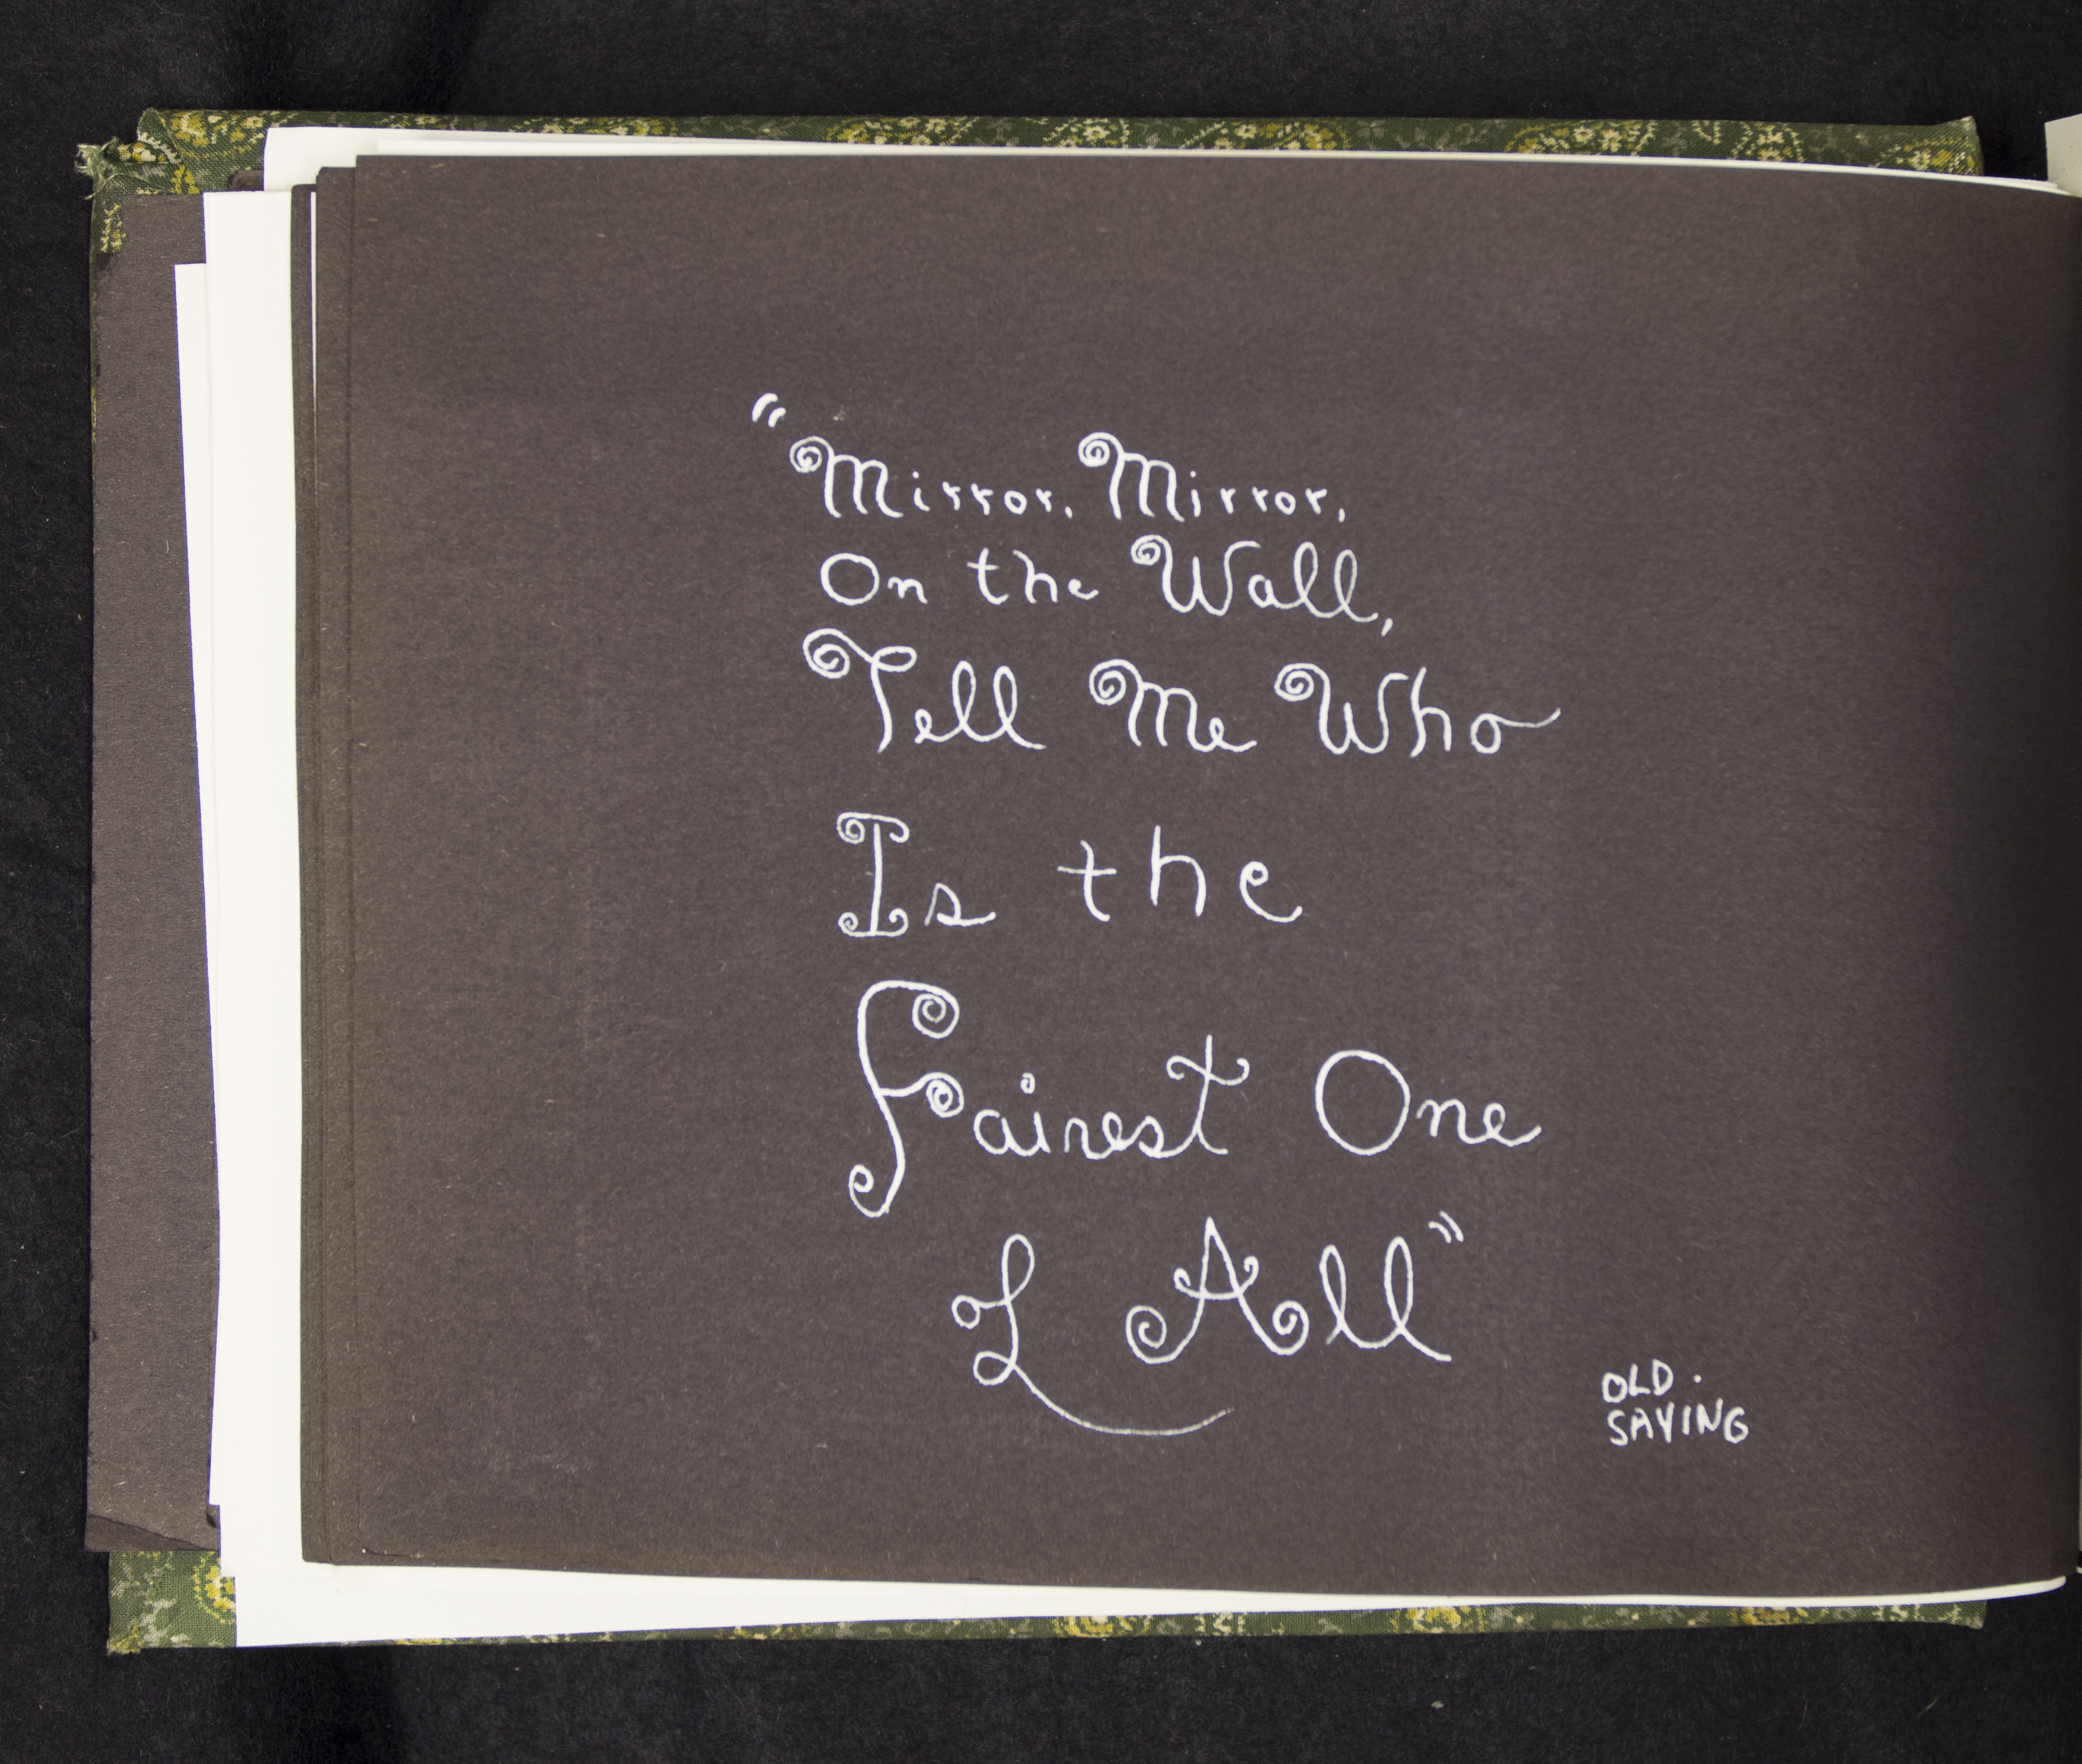 "Mirror, Mirror,
On the Wall,
Tell Me Who
Is the
Fairest One
Of All"
OLD.
SAYING